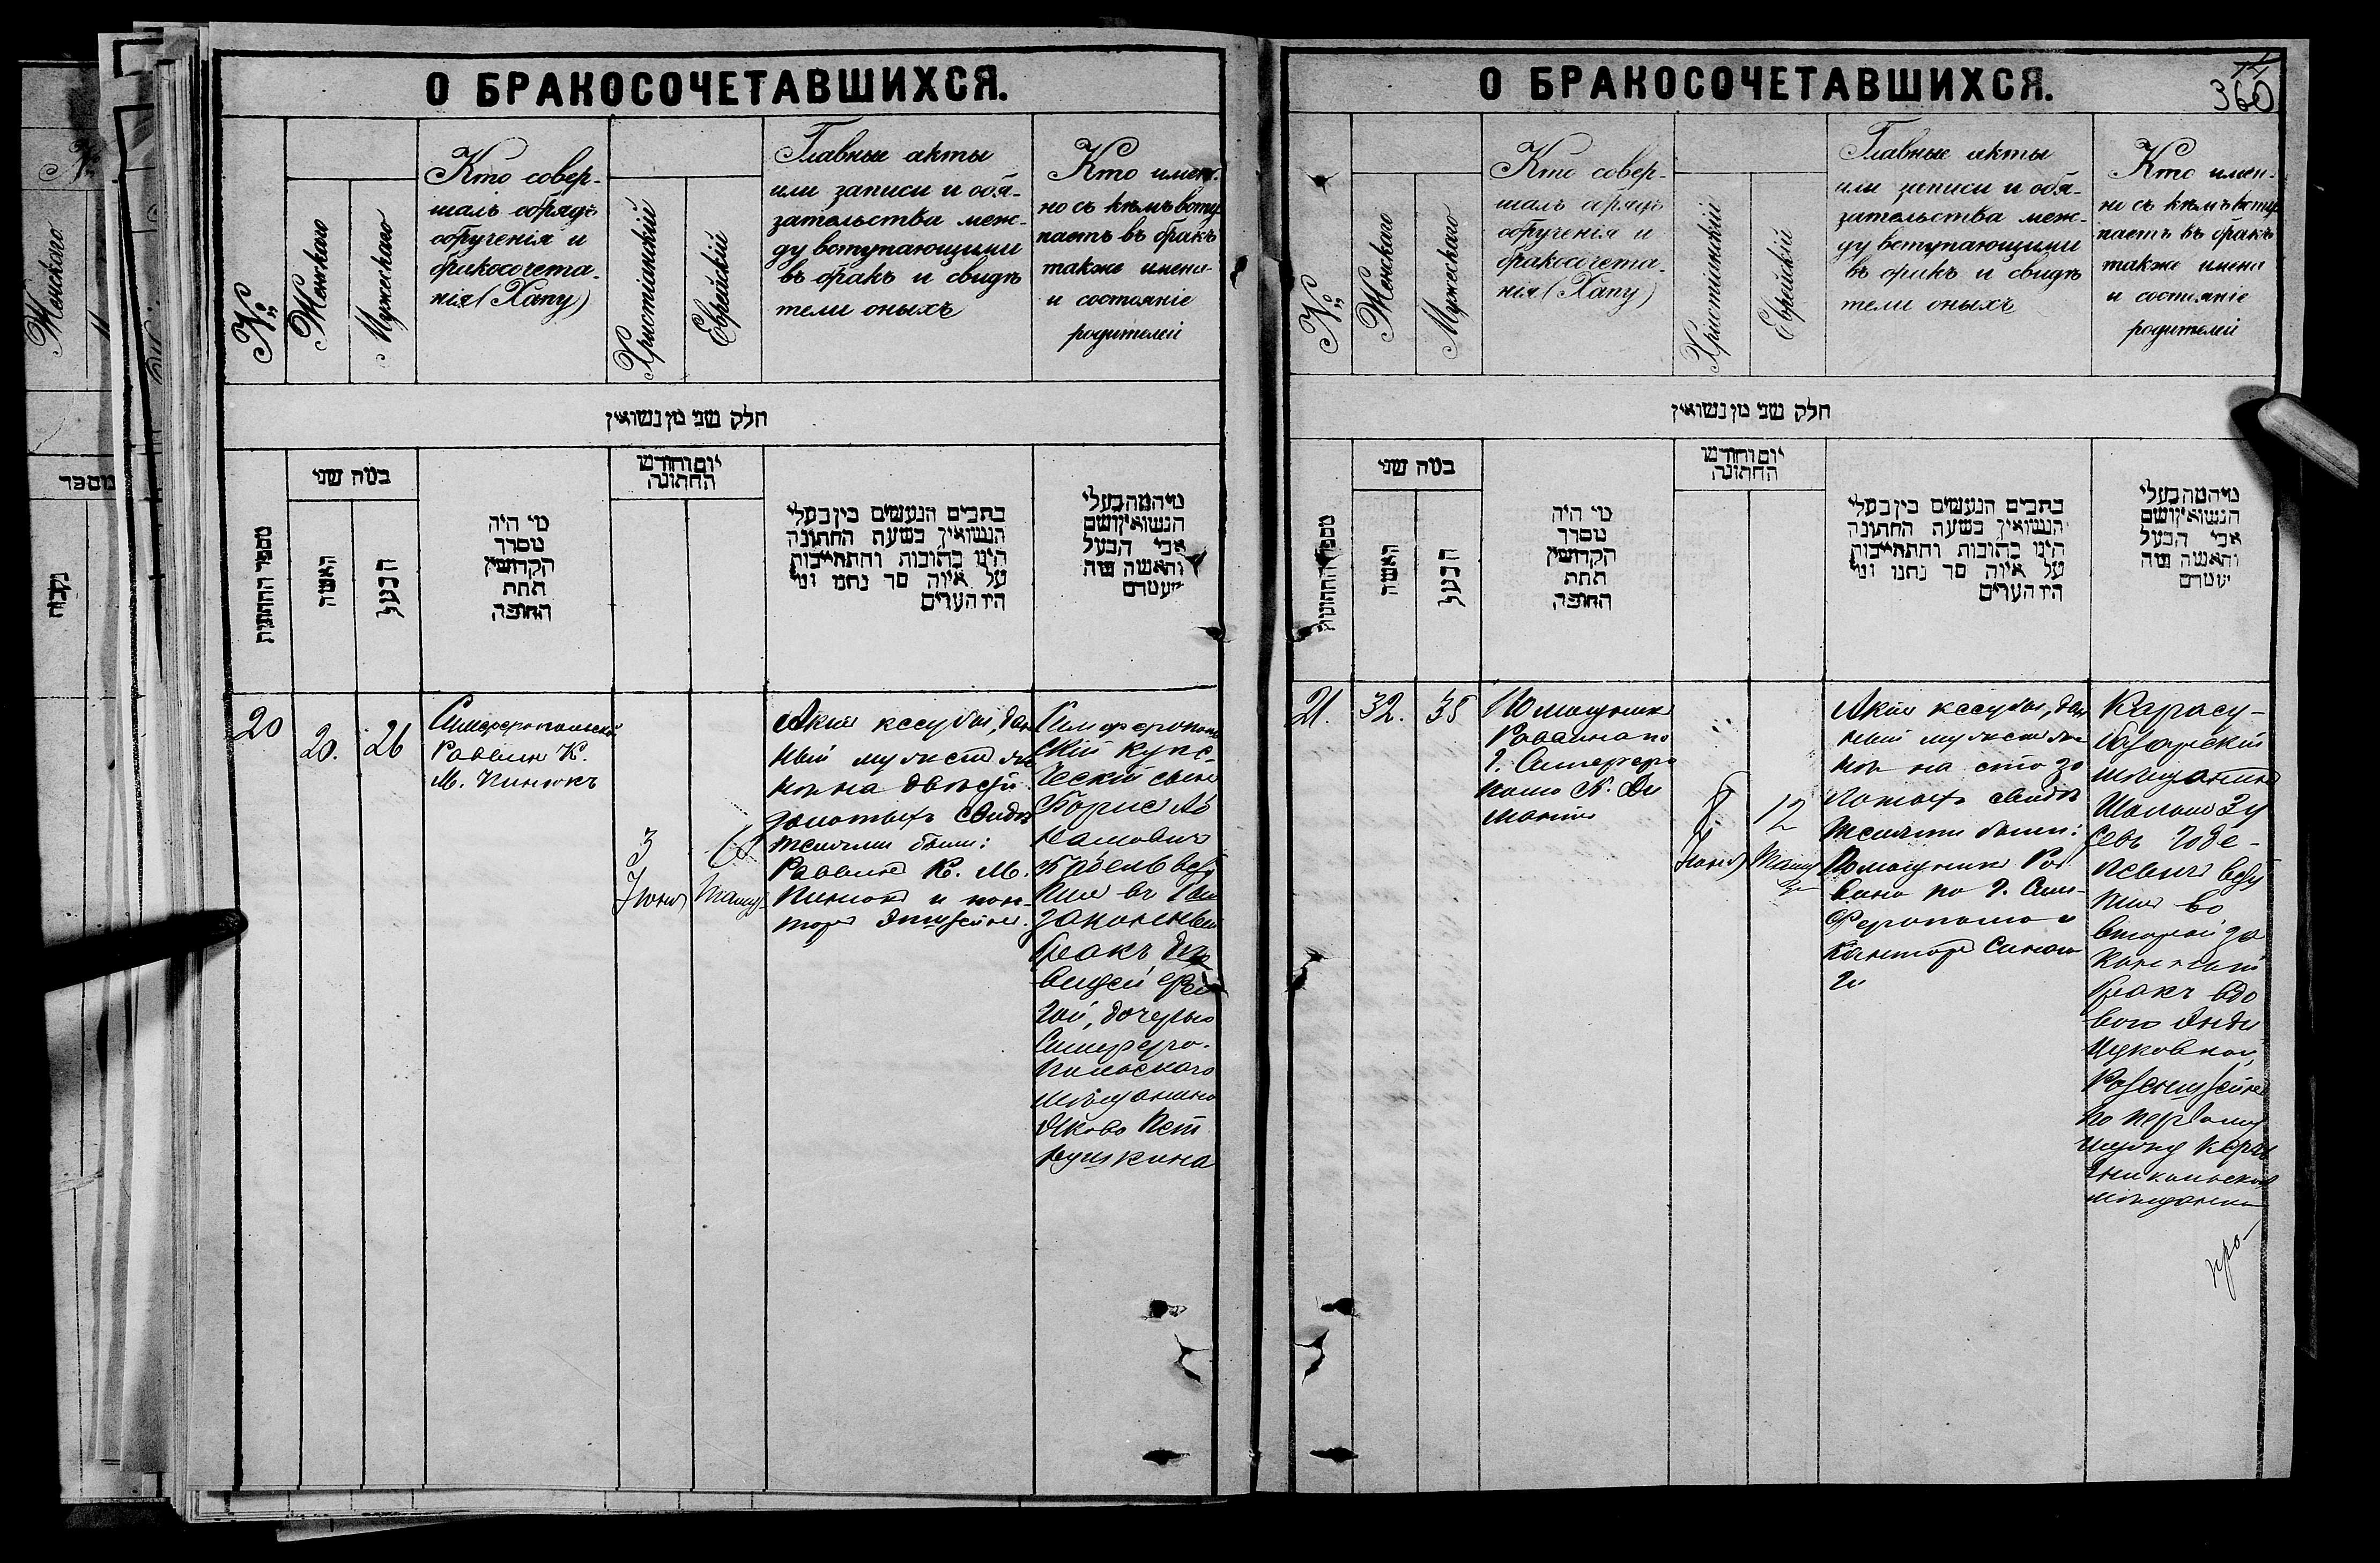 О БРАКОСОЧЕТАВШИХСЯ.
№
Женскаго
Мужескаго
Кто совер-
шалъ обрядъ
обрученія и
бракосочета-
нія (Хапу)
Христіанскій
Еврейскій
Главные акты
или записи и обя-
зательства меж-
ду вступающими
въ бракъ и свидѣ
тели оныхъ
Кто имен-
но съ кѣмъ всту
паетъ въ бракъ
также имена
и состояніе
родителей
חלק שני מן נשואין
מספר החתונות
במה שני
האשה
הבעל
מי היה
מסדר
הקדושין
תחת
החופה
יום וחודש
החתונה
כתבים הנעשים בין בעלי
הנשואין בשעת החתונה
היינו כתובות והתחייבות
על איזה סך נתנו ומי
היו העדים
מי המה בעלי
הנשואין ושם
אבי הבעל
והאשה ומה
מעמדם
20
20.
26
Симферопольскій
Раввин К.
М. Пинюкъ
3
Июня
Тамуз
Акт кесубы, дан
ный мужем же
не на двести
золотых Свиде
телями были:
Раввин К. М.
Пинюк и кан-
тор Эпштейн.
Симферополь
ский купе-
ческий сын
Борис Аб
рамович
всту
пил в 1вый
законный
брак, с де
вицей
дочерью
Симферо-
польского
мещанина
Якова Пет
рушкина
О БРАКОСОЧЕТАВШИХСЯ.
360
№
Женскаго
Мужескаго
Кто совер-
шалъ обрядъ
обрученія и
бракосочета-
нія (Хапу)
Христіанскій
Еврейскій
Главные акты
или записи и обя-
зательства меж-
ду вступающими
въ бракъ и свидѣ
тели оныхъ
Кто имен-
но съ кѣмъ всту
паетъ въ бракъ
также имена
и состояніе
родителей
חלק שני מן נשואין
מספר החתונות
במה שני
האשה
הבעל
מי היה
מסדר
הקדושין
תחת
החופה
יום וחודש
החתונה
כתבים הנעשים בין בעלי
הנשואין בשעת החתונה
היינו כתובות והתחייבות
על איזה סך נתנו ומי
היו העדים
מי המה בעלי
הנשואין ושם
אבי הבעל
והאשה ומה
מעמדם
21.
32.
38
Помощник
Раввина по
г. Симферо
полю
Июня
12
Тамуз
Акт кесубы, дан
ный мужем же
не на сто зо
лотых Свиде
телями были:
Помощник Рав
вина по г. Сим-
ферополю и
Кантор Синаго
ги
Карасу-
базарский
мещанин
всту
пил во
второй за
конный
брак с вдо
вою
Ицковной,
Розенштейн
по первому
мужу Керчь
Еникольской
мещанкой
про-